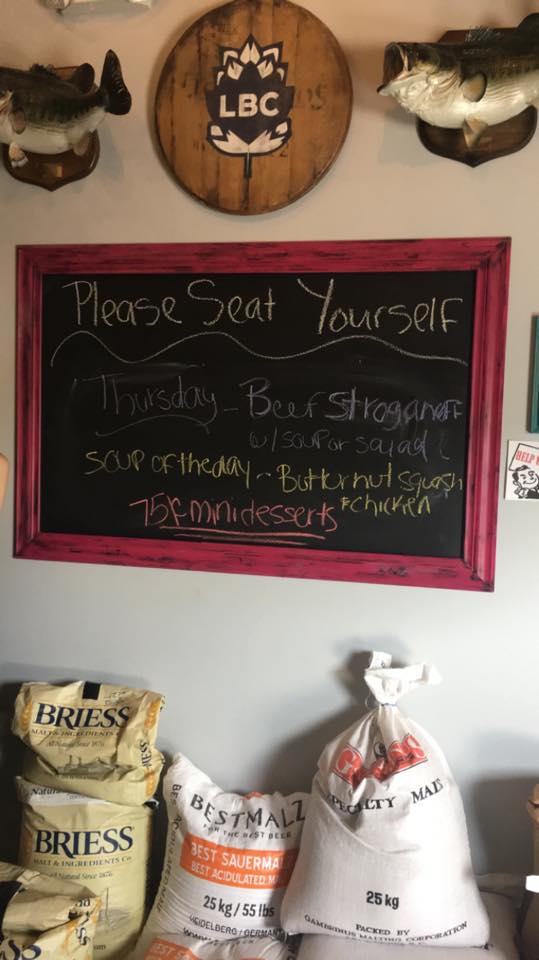 LBC
Please Seat Yourself
Thursday - Beef Stroganoff
w/ soup or salad
soup of the day - Butternut squash
& chicken
75¢ mini desserts
HELP
BRIESS
MALT & INGREDIENTS CO
All Natural Since 1876
BRIESS
BRIESS
MALT & INGREDIENTS CO.
All Natural Since 1876
BESTMALZ
FOR THE BEST BEER
BEST SAUERMA
BEST ACIDULATED M
25 kg / 55 lbs
HEIDELBERG / GERMANY
SPECIALTY MALT
25 kg
PACKED BY
GAMBRINUS MALTING CORPORATION